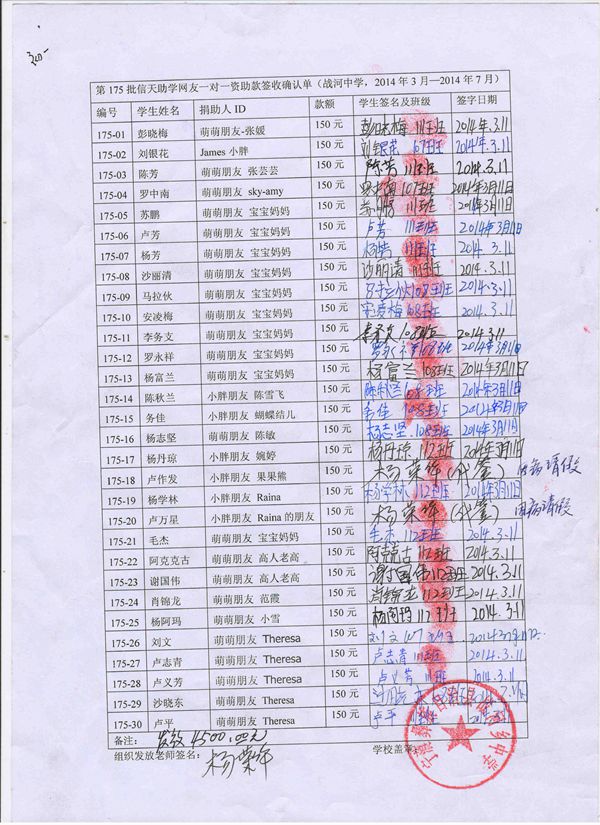 第 175 批信天助学网友一对一资助款签收确认单（战河中学，2014 年 3 月—2014 年 7 月）
编号 学生姓名 捐助人 ID 款额 学生签名及班级 签字日期
175-01 彭晓梅 萌萌朋友-张媛 150 元 彭晓梅 111班 2014年.3.11
175-02 刘银花 James 小胖 150 元 刘银花 107班 2014.3.11
175-03 陈芳 萌萌朋友 张芸芸 150 元 陈芳 111班 2014.3.11
175-04 罗中南 萌萌朋友 sky-amy 150 元 107班 2014年3月11日
175-05 苏鹏 萌萌朋友 宝宝妈妈 150 元 苏鹏 111班 2014年3月11日
175-06 卢芳 萌萌朋友 宝宝妈妈 150 元 卢芳 111班 2014年3月11日
175-07 杨芳 萌萌朋友 宝宝妈妈 150 元 2014.3.11
175-08 沙丽清 萌萌朋友 宝宝妈妈 150 元 沙丽清 111班 2014.3.11
175-09 马拉伙 萌萌朋友 宝宝妈妈 150 元 108班 2014.3.11
175-10 安凌梅 萌萌朋友 宝宝妈妈 150 元 安凌梅 108班 2014.3.11
175-11 李务支 萌萌朋友 宝宝妈妈 150 元 108班 2014.3.11
175-12 罗永祥 萌萌朋友 宝宝妈妈 150 元 108班 2014年3月11日
175-13 杨富兰 萌萌朋友 宝宝妈妈 150 元 杨富兰 108班 2014年3月11日
175-14 陈秋兰 小胖朋友 陈雪飞 150 元 陈秋兰 108班 2014年3月11日
175-15 务佳 小胖朋友 蝴蝶结儿 150 元 务佳 108班 2014年3月11日
175-16 杨志坚 萌萌朋友 陈敏 150 元 杨志坚 108班 2014年3月11日
175-17 杨丹琼 小胖朋友 婉婷 150 元 杨丹琼 112班 2014年3月11日
175-18 卢作发 小胖朋友 果果熊 150 元 杨荣华（代签） 因病请假
175-19 杨学林 小胖朋友 Raina 150 元 杨学林 112班 2014年3月11日
175-20 卢万星 小胖朋友 Raina 的朋友 150 元 杨荣华（代签） 因病请假
175-21 毛杰 萌萌朋友 宝宝妈妈 150 元 毛杰 112班 2014.3.11
175-22 阿克克古 萌萌朋友 高人老高 150 元 阿克克古 112班 2014.3.11
175-23 谢国伟 萌萌朋友 高人老高 150 元 谢国伟 112班 2014.3.11
175-24 肖锦龙 萌萌朋友 范霞 150 元 肖锦龙 112班 2014.3.11
175-25 杨阿玛 萌萌朋友 小雪 150 元 杨阿玛 112班 2014.3.11
175-26 刘文 萌萌朋友 Theresa 150 元 刘文 107班 2014年3月11日
175-27 卢志青 萌萌朋友 Theresa 150 元 卢志青 111班 2014.3.11
175-28 卢义芳 萌萌朋友 Theresa 150 元 卢义芳 111班 2014.3.11
175-29 沙晓东 萌萌朋友 Theresa 150 元
175-30 卢平 萌萌朋友 Theresa 150 元 卢平
备注： 发放 4500.00元
组织发放老师签名： 杨荣华 学校盖章：